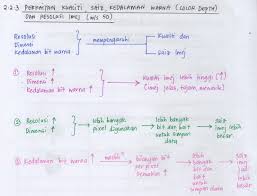 2.2.3 PERKAITAN KUALITI SAIZ, KEDALAMAN WARNA (COLOR DEPTH)
DAN RESOLUSI IMEJ (m/s 50)
Resolusi
Dimensi
Kedalaman bit warna
mempengaruhi
Kualiti dan
saiz imej
① Resolusi ↑
Dimensi ↑
Kedalaman bit warna ↑
Kualiti imej lebih tinggi (↑)
(imej jelas, tajam, menarik)
② Resolusi ↑
Dimensi ↑
lebih banyak
pixel digunakan
lebih banyak
bit dan bait
untuk simpan
data
saiz
imej lebih
besar
③ Kedalaman bit warna ↑
bilangan bit
per
↑
lebih
banyak
bit dan
bait
untuk
simpan
data
saiz
imej
lebih
besar